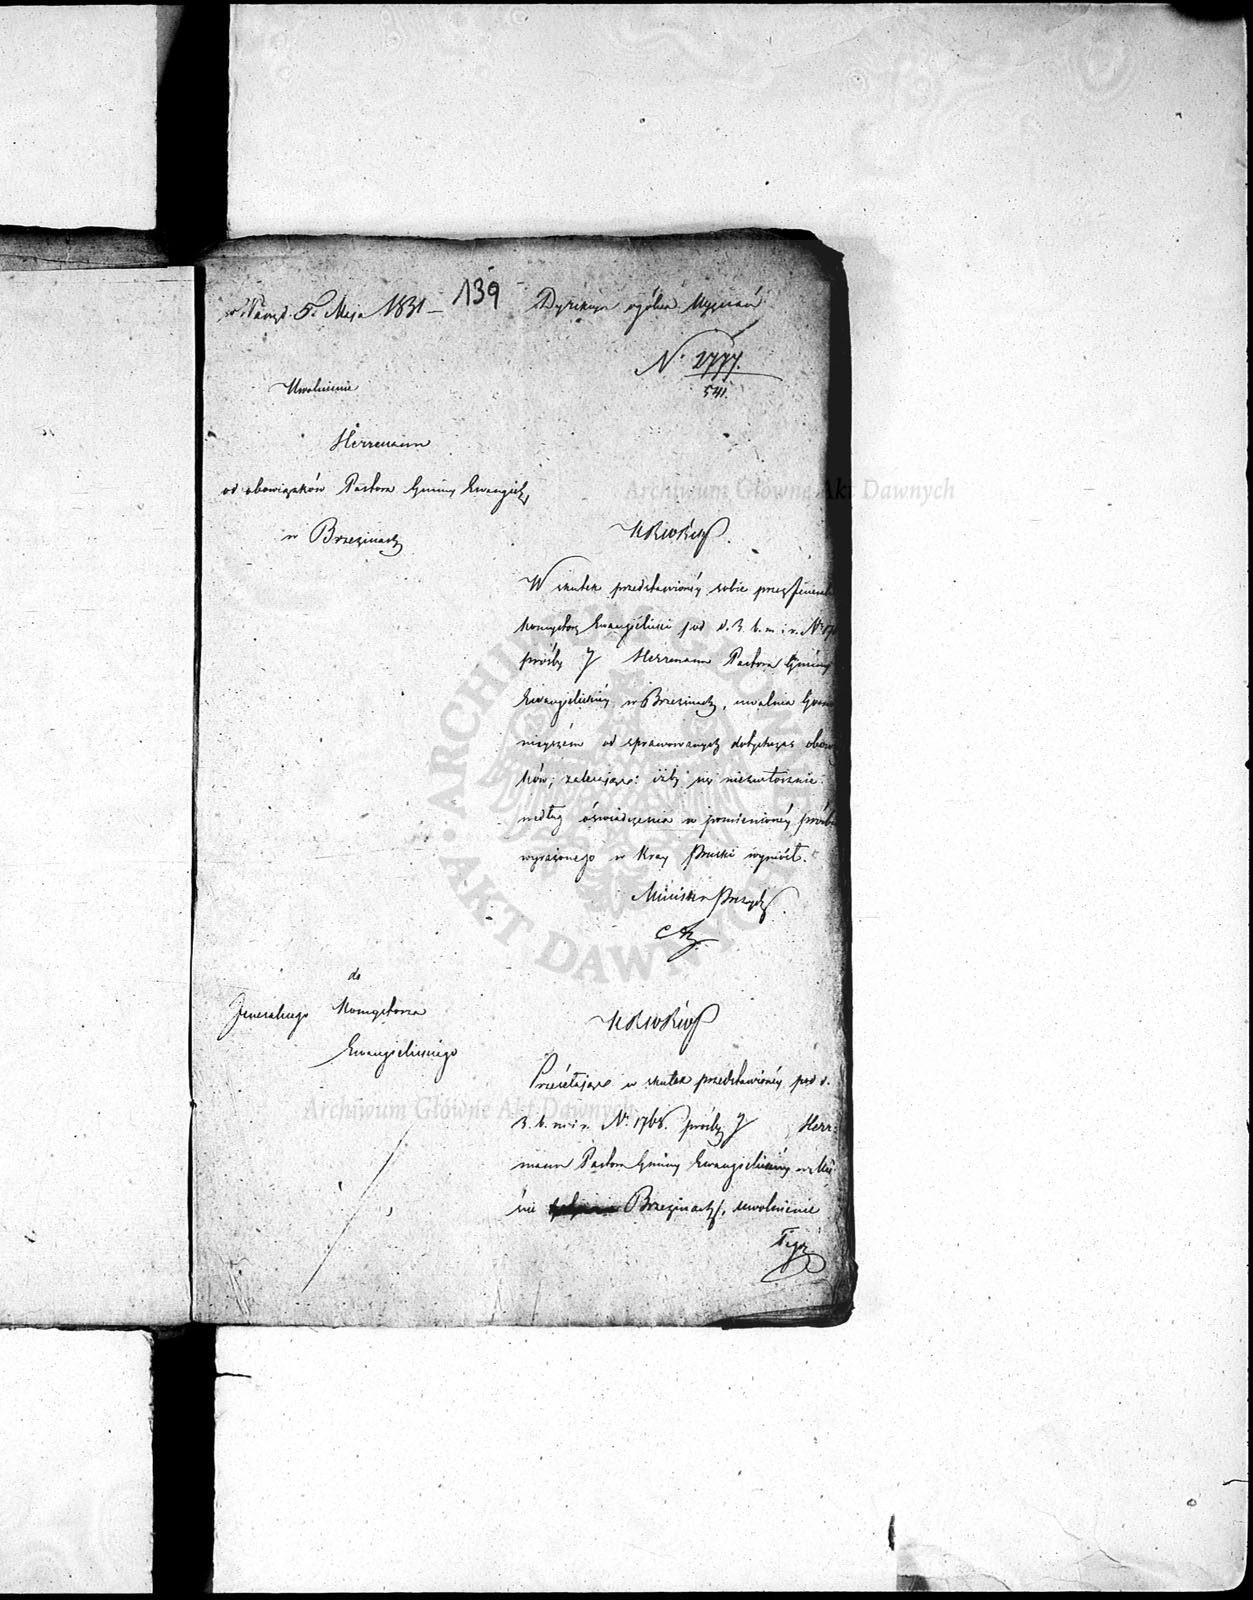 w Warsz. 5 Maja 1831 –
139
Dyrekcya ogólna Wyznań
N. 2777.
541.
Uwolnienie
Herrmann
od obowiązków Pastora Gminy Ewangiel.
w Brzezinach
Archiwum Główne Akt Dawnych
KRWRiOP.
W skutek przedstawionéy sobie przez Jeneral
Konsystorz Ewangielicki pod d. 3. b. m. i r. No 176
prośby J Herrmann Pastora Gminy
Ewangielickiéy w Brzezinach, uwalnia
ninieyszém od sprawowanych dotychczas obow
ków, zalecając: iżby się niezwłocznie
według oświadczenia w pomienionéy prośb
wyrażonego w Kray Pruski wyniósł.
Minister Prezyd.
ARCHIWUM GŁÓWNE AKT DAWNYCH
do
Jeneralnego Konsystorza
Ewangielickiego
KRWRiOP
Przesełając w skutek przedstawionéy pod d.
Archiwum Główne Akt Dawnych
3. b. m. i r. No 1768. prośby J Herr-
mann Pastora Gminy Ewangielickiéy w Mie-
ście Brzezinach, uwolnienie
Tegoż